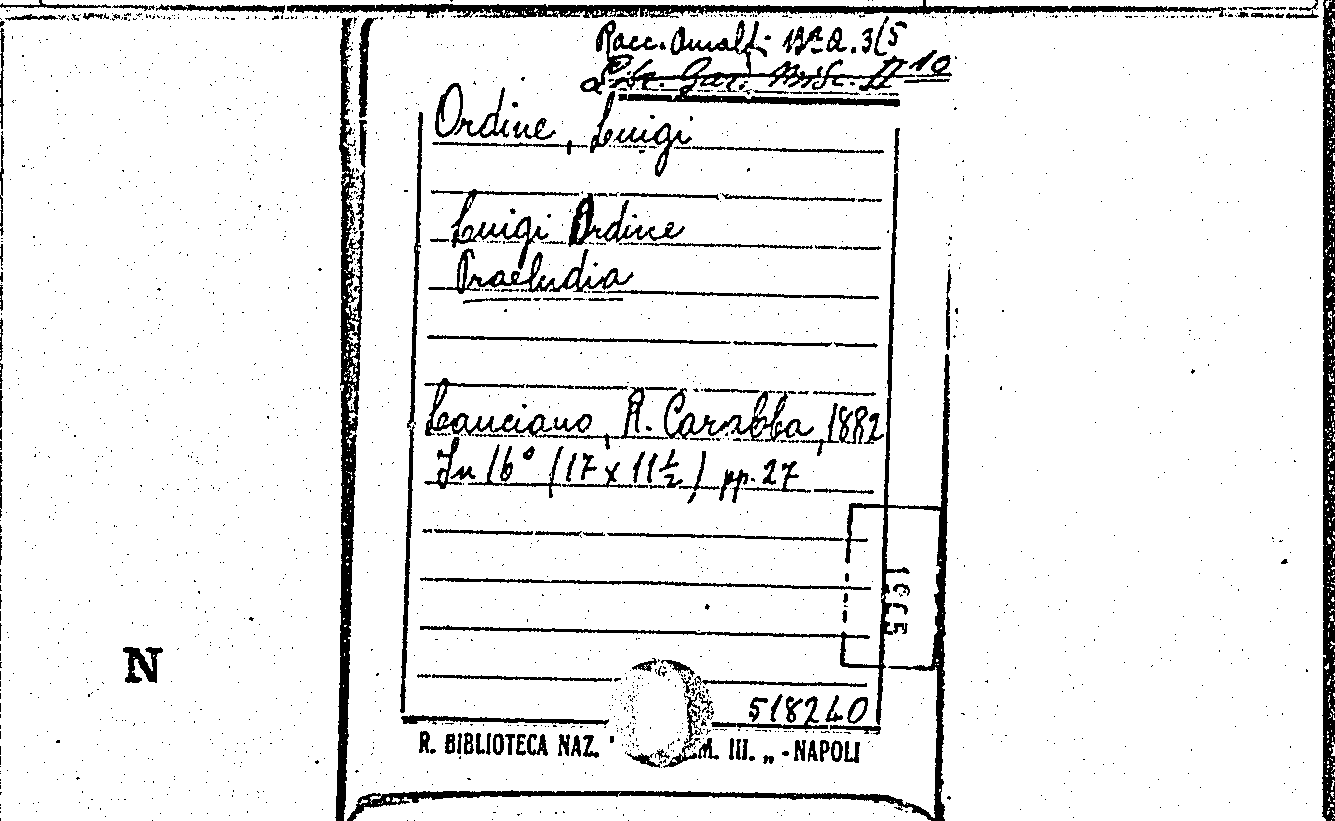 Racc. Amalfi Bª A. 3/5
Libr. Gar. Misc. II 10
Ordine, Luigi
Luigi Ordine
Praeludia
Lanciano, R. Carabba, 1882
In 16° (17 x 11½) pp. 27
518240
R. BIBLIOTECA NAZ. " M. III. „ - NAPOLI
N